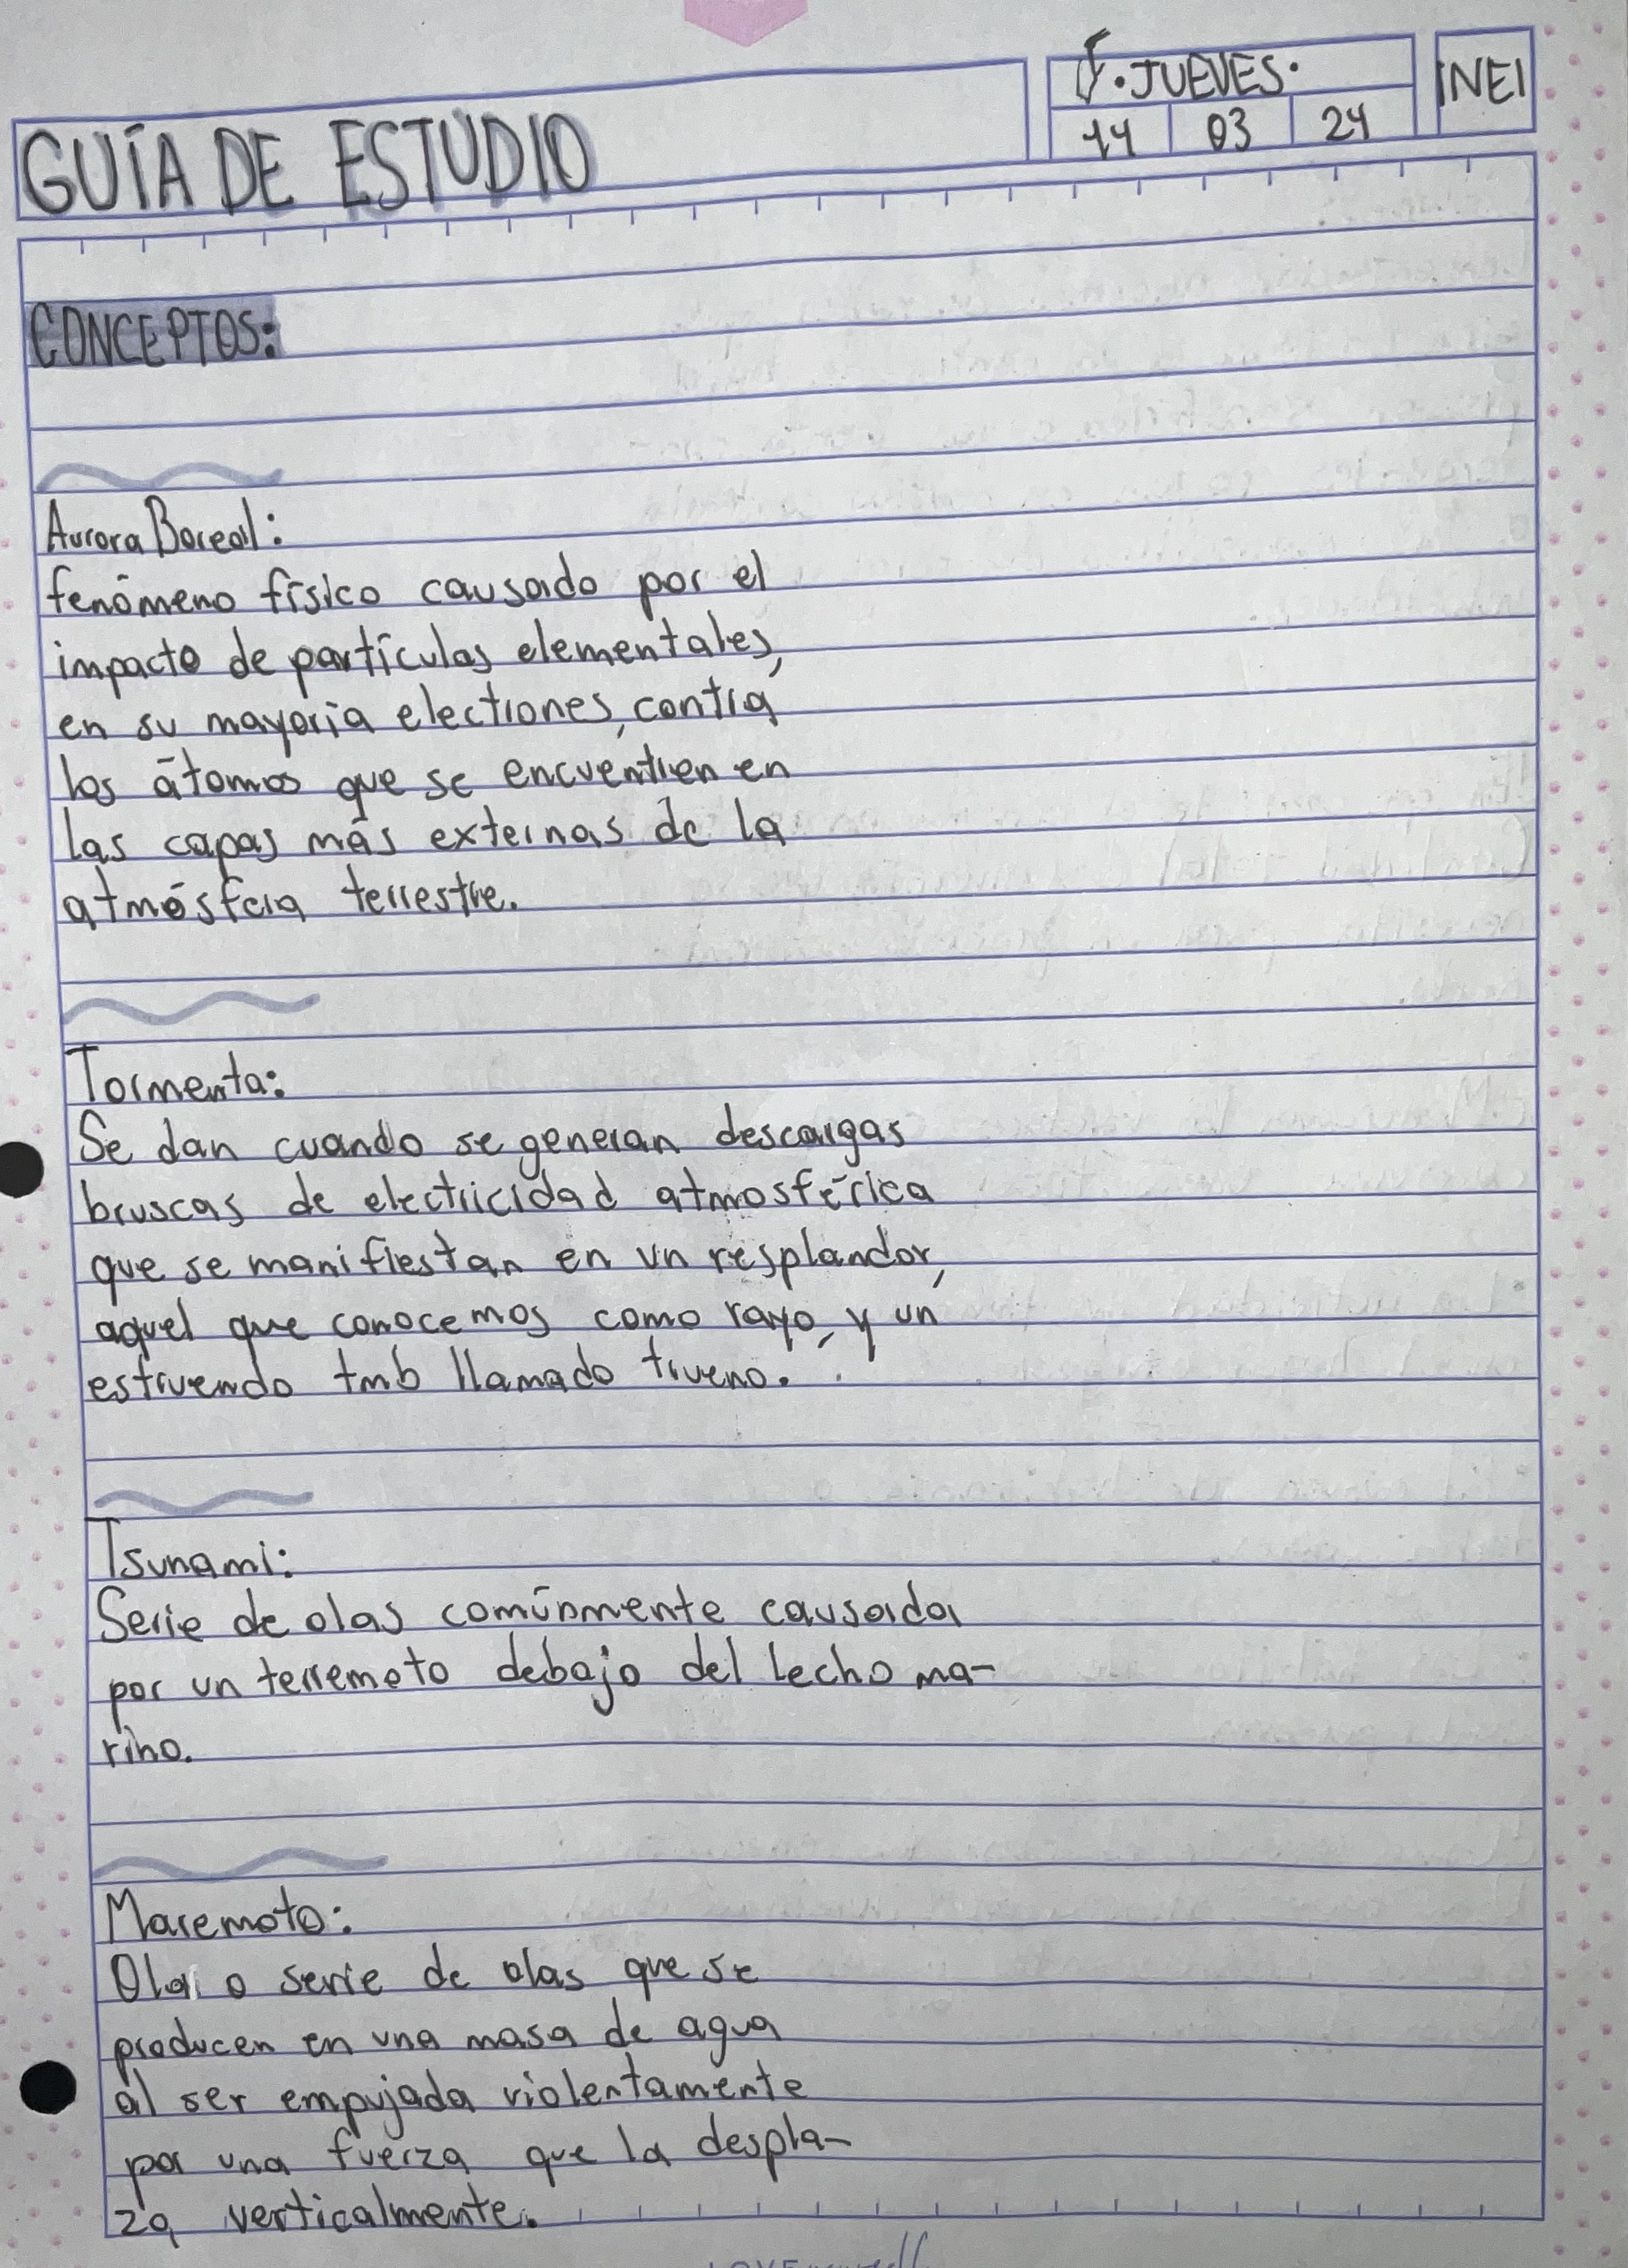 ·JUEVES·
INEI
GUÍA DE ESTUDIO
14 03 24
CONCEPTOS:
Aurora Boreal:
fenómeno físico causado por el
impacto de partículas elementales,
en su mayoria electrones, contra
los átomos que se encuentren en
las capas más externas de la
atmósfera terrestre.
Tormenta:
Se dan cuando se generan descargas
bruscas de electricidad atmosférica
que se manifiestan en un resplandor,
aquel que conocemos como rayo, y un
estruendo tmb llamado trueno.
Tsunami:
Serie de olas comúnmente causada
por un terremoto debajo del lecho ma-
rino.
Maremoto:
Ola o serie de olas que se
producen en una masa de agua
al ser empujada violentamente
por una fuerza que la despla-
za verticalmente.